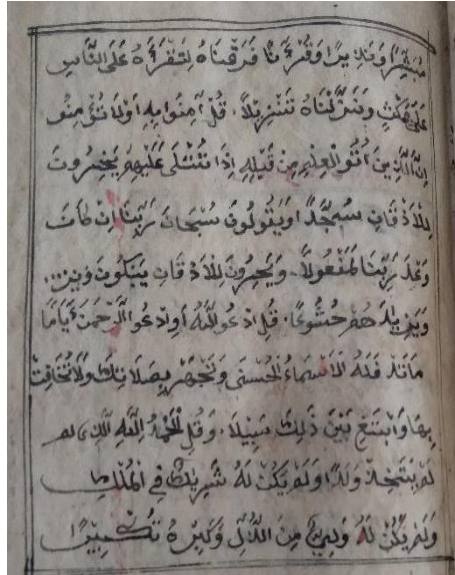 مبشرا ونذيرا وقرءانا فرقناه لتقرأه على الناس
على مكث ونزلناه تنزيلا. قل آمنوا به أولا تؤمنو
إن الذين أتوا العلم من قبله إذا تتلى عليهم يخرون
للأذقان سجدا ويقولون سبحان ربنا إن كان
وعد ربنا لمفعولا. ويخرون للأذقان يبكون
ويزيدهم خشوعا. قل ادعو الله أو ادعو الرحمن أياما
ما تد فله الاسماء الحسنى وتجهر بصلاتك ولا تخافت
بها وابتغ بين ذلك سبيلا. وقل الحمد لله الذى لم
لم يتخذ ولدا ولم يكن له شريك في الملك
ولم يكن له ولي من الذل وكبره تكبيرا